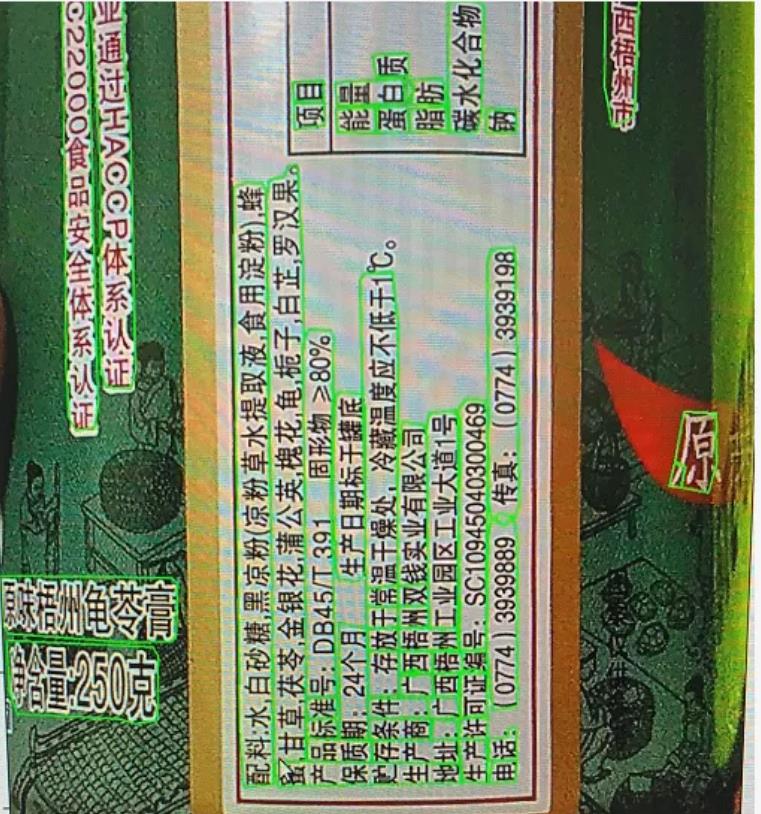 业通过HACCP体系认证
C22000食品安全体系认证
原味梧州龟苓膏
净含量:250克
配料:水,白砂糖,黑凉粉(凉粉草水提取液,食用淀粉),蜂
蜜,甘草,茯苓,金银花,蒲公英,槐花,龟,栀子,白芷,罗汉果。
产品标准号:DB45/T 391 固形物 ≥80%
保质期:24个月 生产日期标于罐底
贮存条件:存放于常温干燥处,冷藏温度应不低于1℃。
生产商:广西梧州双钱实业有限公司
地址:广西梧州工业园区工业大道1号
生产许可证编号:SC10945040300469
电话:(0774)3939889 传真:(0774)3939198
项目
能量
蛋白质
脂肪
碳水化合物
钠
西梧州市
原